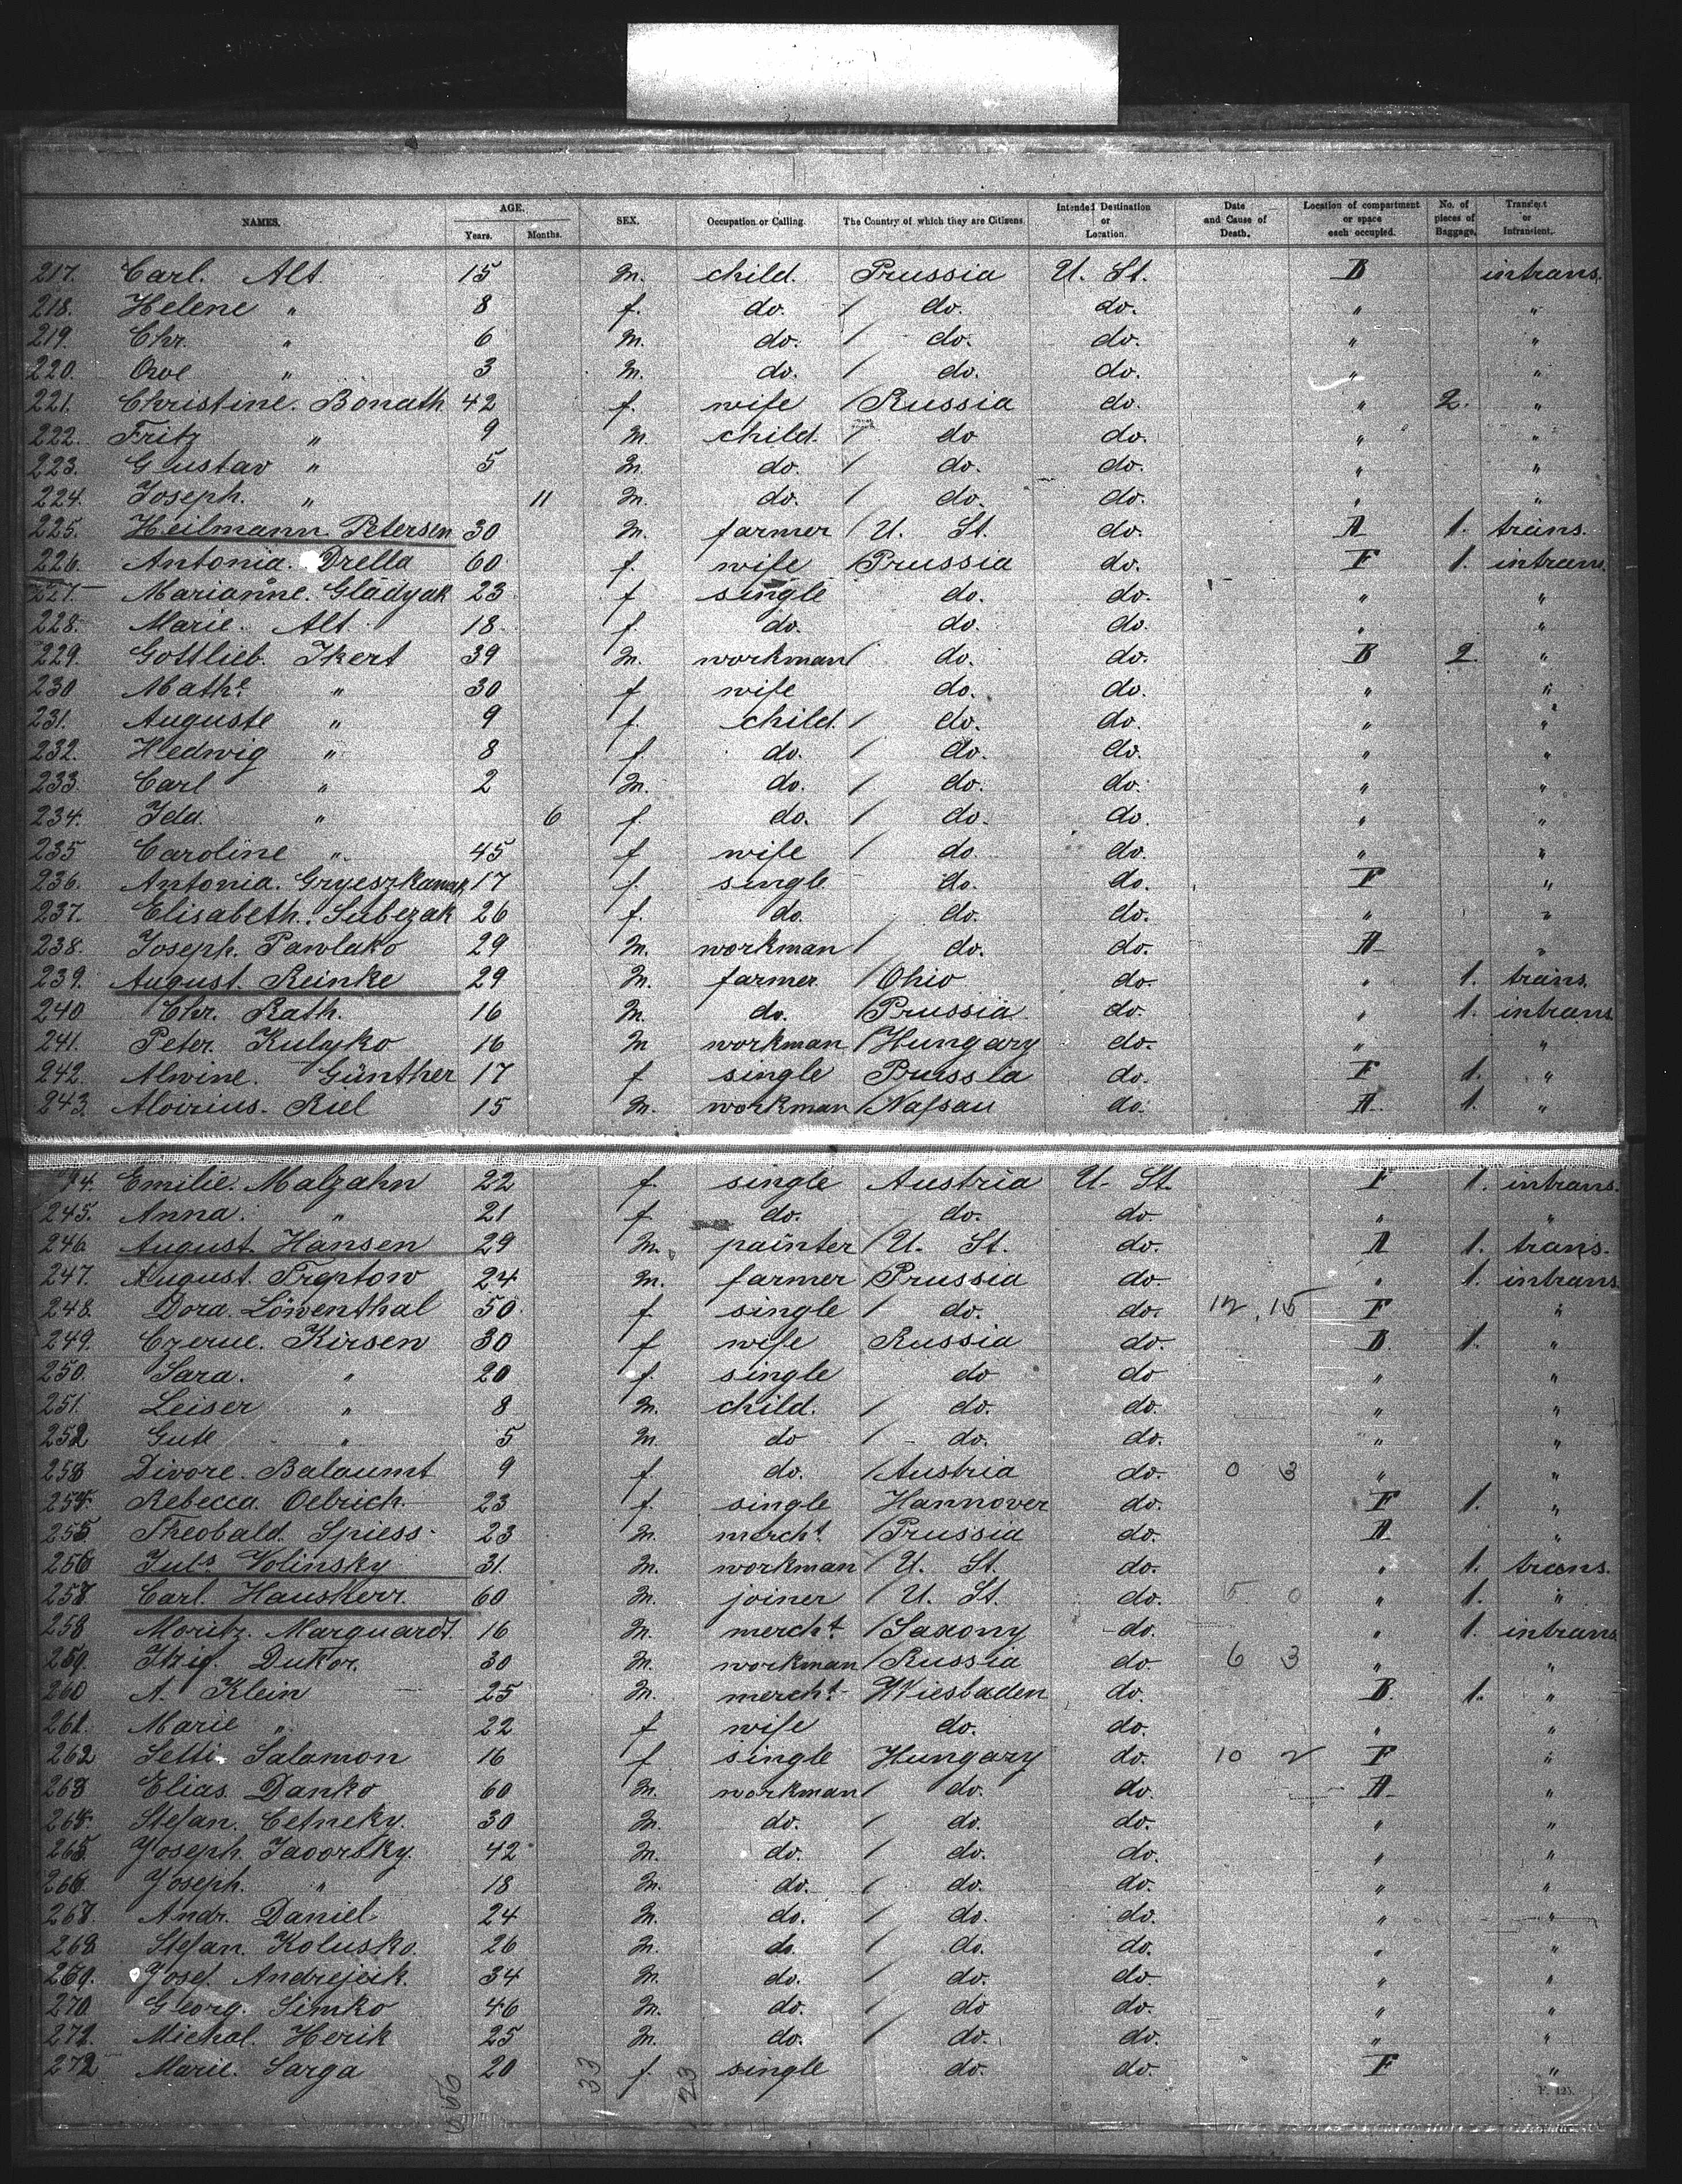 NAMES. AGE. Years. Months. SEX. Occupation or Calling. The Country of which they are Citizens. Intended Destination or Location. Date and Cause of Death. Location of compartment or space each occupied. No. of pieces of Baggage. Transient or Intransient.
217. Carl. Alt. 15 M. child. Prussia U. St. B intrans.
218. Helene " 8 f. do. / do. do. " "
219. Chr. " 6 M. do. / do. do. " "
220. Owe " 3 M. do. / do. do. " "
221. Christine. Bonath 42 f. wife / Russia do. " 2. "
222. Fritz " 9 M. child. / do do. " "
223. Gustav " 5 M. do. / do. do. " "
224. Joseph. " 11 M. do. / do. do. " "
225. Heilmann Petersen 30 M. farmer / U. St. do. A 1. trans.
226. Antonia. Drella 60 f. wife Prussia do. F 1. intrans.
227. Marianne. Gladyak 23 f single do. do. " "
228. Marie. Alt. 18. f. do. do. do. " "
229. Gottlieb. Ikert 39 M. workman / do. do. B 2. "
230 Mathe " 30 f wife do. do. " "
231. Auguste " 9 f. child. / do. do. " "
232. Hedwig " 8 f. do. / do. do. " "
233. Carl " 2 M. do. / do. do. " "
234. Ida. " 6 f. do. / do. do. " "
235 Caroline " 45 f wife / do. do. " "
236. Antonia. 17 f. single do. do. F "
237. Elisabeth. Subezak 26 f. do. do. do. " "
238. Joseph. Pawlako 29 M. workman / do. do. A "
239. August. Reinke 29 M. farmer / Ohio do. " 1. trans.
240 Chr. Rath. 16 M. do. / Prussia do. " 1. intrans.
241. Peter. Kulyko 16 M workman / Hungary do. " "
242. Alwine. Günther 17 f single Prussia do. F 1. "
243. Aloirius. Riel 15 M. workman / Nassau do. A 1. "
44. Emilie. Malzahn 22 f. single Austria U. St. F 1. intrans.
245. Anna. " 21 f do. do. do. " "
246. August. Hansen 29 M. painter / U. St. do. A 1. trans.
247. August. Treptow 24 M. farmer Prussia do. " 1. intrans.
248. Dora. Löwenthal 50 f single / do. do. 12, 15 F "
249. Kirsen 30 f wife Russia do. B. 1. "
250. Sara. " 20 f. single do do " "
251. Leiser " 8 M. child. / do. do. " "
252 Gute " 5 M. do / do. do. " "
253 Divore. Balaumt 9 f. do. / Austria do. 0 3 " "
254. Rebecca Oelrich. 23 f. single Hannover do. F 1. "
255 Theobald. Spiess. 23 M. mercht / Prussia do. A "
256 Juls. Volinsky 31. M. workman / U. St. do. " 1. trans.
257 Carl. Hausherr. 60 M. joiner / U. St. do. 5 0 " 1. "
258 Moritz. Marquardt. 16 M. mercht / Saxony do. " 1. intrans
259. Itzig. Dukor. 30 M. workman / Russia do. 6 3 " "
260 A. Klein 25 M. mercht Wiesbaden do. B. 1. "
261. Marie " 22 f wife do. do. " "
262 Setti. Salamon 16 f single Hungary do. 10 2 F "
263 Elias. Danko 60 M. workman / do. do. A "
264. Stefan. Cetneky. 30 M. do. / do. do. " "
265. Joseph. Javorsky. 42 M. do. / do. do. " "
266 Joseph. " 18 M. do. / do. do. " "
267. Andr. Daniel. 24 M. do. / do. do. " "
268 Stefan. Kolusko. 26 M. do. / do. do. " "
269. Josef. Andrejcik. 34 M. do. / do. do. " "
270. Georg. Simko 46 M. do. / do do. " "
271. Michal. Herik 25 M. do. / do. do. " "
272 Marie. Sarga 20 f. single do. do. F "
33 23
F. 125.